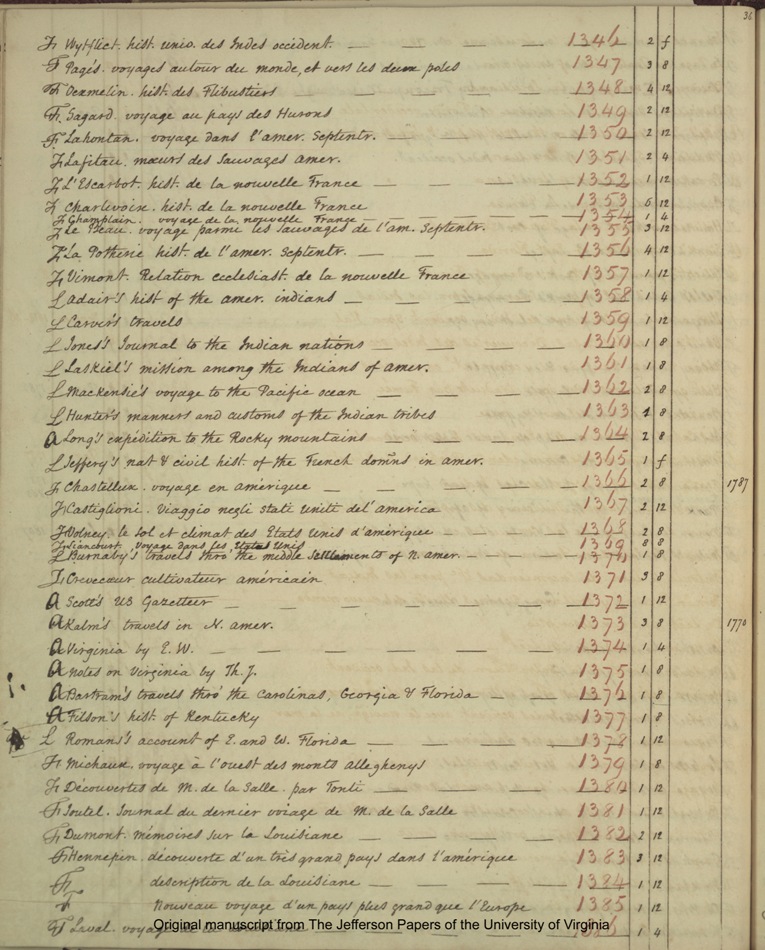 36
F Wytfliet. hist. univ. des Indes occident. 1346 2 f
F Pagés. voyages autour du monde, et vers les deux poles 1347 3 8
F Oexmelin. hist. des Flibustiers 1348 4 12
F Sagard. voyage au pays des Hurons 1349 2 12
F Lahontan. voyage dans l'amer. Septentr. 1350 2 12
F Lafitau. mœurs des Sauvages amer. 1351 2 4
F L'Escarbot. hist. de la nouvelle France 1352 1 12
F Charlevoix. hist. de la nouvelle France 1353 6 12
F Champlain. voyage de la nouvelle France 1354 1 4
F Le Beau. voyage parmi les sauvages de l'am. Septentr. 1355 3 12
F La Potherie hist. de l'amer. Septentr. 1356 4 12
F Vimont. Relation ecclesiast. de la nouvelle France 1357 1 12
L Adair's hist of the amer. indians 1358 1 4
L Carver's travels 1359 1 12
L Jones's Journal to the Indian nations 1360 1 8
L Laskiel's mission among the Indians of amer. 1361 1 8
L Mackensie's voyage to the Pacific ocean 1362 2 8
L Hunter's manners and customs of the Indian tribes 1363 1 8
a Long's expedition to the Rocky mountains 1364 2 8
L Jeffery's nat & civil hist. of the French domns in amer. 1365 1 f
F Chastellux. voyage en amérique 1366 2 8 1787
F Castiglioni. Viaggio negli stati uniti del'america 1367 2 12
F Volney. le sol et climat des Etats Unis d'amérique 1368 2 8
F Liancourt. Voyage dans les Etats Unis 1369 8 8
L Burnaby's travels thro' the middle settlements of N. amer. 1370 1 8
F Crevecœur cultivateur américain 1371 3 8
a Scott's US Gazetteer 1372 1 12
a Kalm's travels in N. amer. 1373 3 8 1770
a Virginia by E. W. 1374 1 4
a notes on Virginia by Th. J. 1375 1 8
a Bartram's travels thro' the Carolinas, Georgia & Florida 1376 1 8
a Filson's hist. of Kentucky 1377 1 8
L Romans's account of E. and W. Florida 1378 1 12
F Michaux. voyage à l'ouest des monts alleghenys 1379 1 8
F Découvertes de M. de la Salle. par Tonti 1380 1 12
F Joutel. Journal du dernier voiage de M. de la Salle 1381 1 12
F Dumont. mémoires sur la Louisiane 1382 2 12
F Hennepin. découverte d'un très grand pays dans l'amérique 1383 3 12
F description de la Louisiane 1384 1 12
F Nouveau voyage d'un pays plus grand que l'Europe 1385 1 12
F Laval. voyage 1 4
Original manuscript from The Jefferson Papers of the University of Virginia